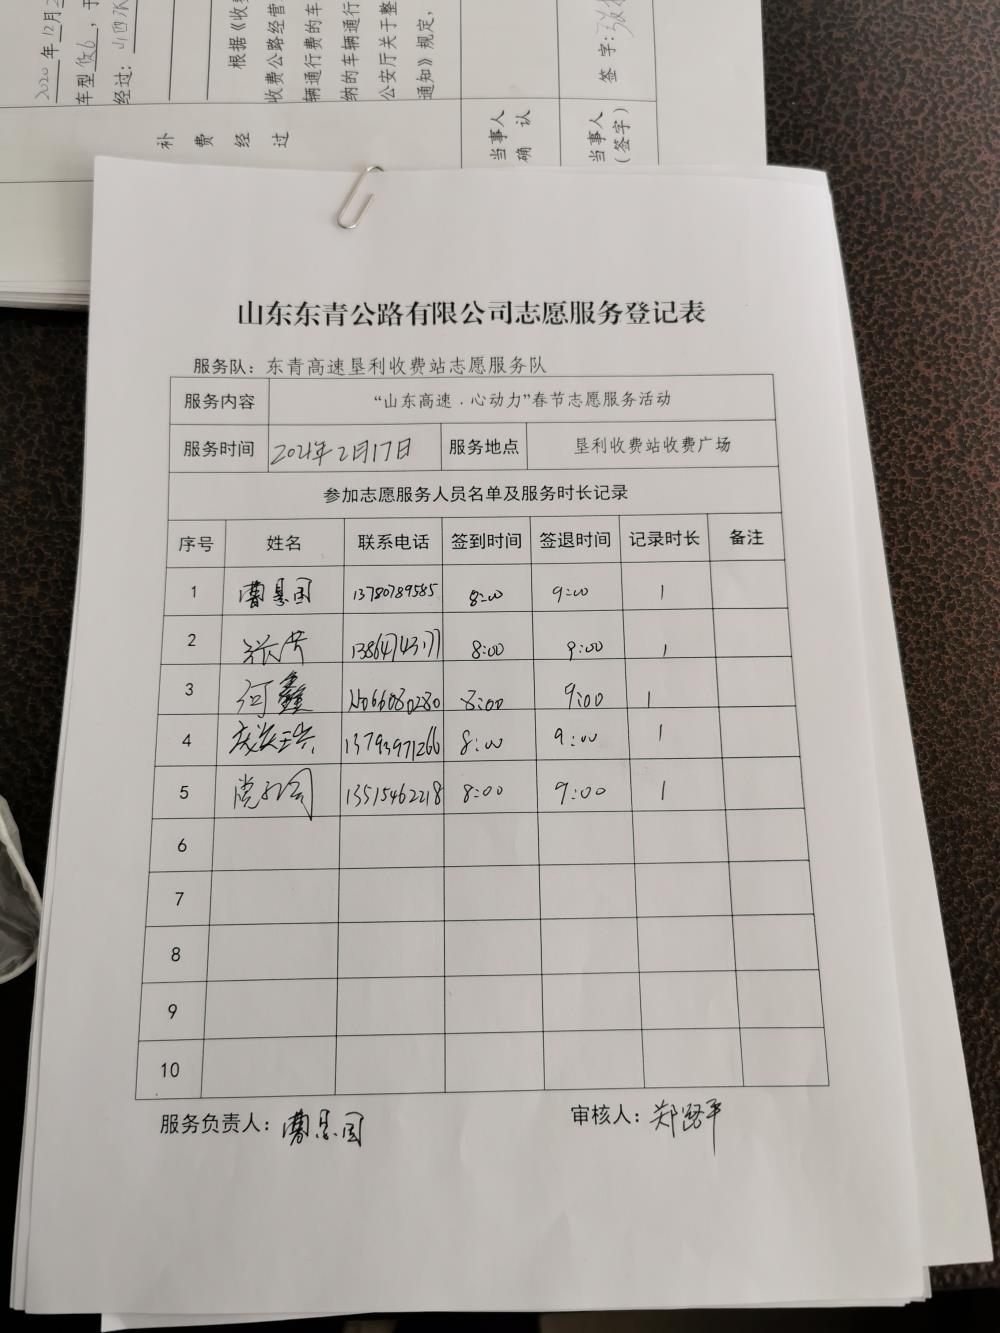 2020年12月2
车型货6,于
经过:山西
根据《收费
收费公路经营
辆通行费的车
纳的车辆通行
公安厅关于整
通知》规定,
签 字:
补 费 经 过
当事人
确 认
当事人
(签字)
山东东青公路有限公司志愿服务登记表
服务队:东青高速垦利收费站志愿服务队
服务内容 “山东高速．心动力”春节志愿服务活动
服务时间 2021年2月17日 服务地点 垦利收费站收费广场
参加志愿服务人员名单及服务时长记录
序号 姓名 联系电话 签到时间 签退时间 记录时长 备注
1 曹恩国 13780789585 8:00 9:00 1
2 张芹 13864743177 8:00 9:00 1
3 何鑫 8:00 9:00 1
4 13793971266 8:00 9:00 1
5 13515462218 8:00 9:00 1
6
7
8
9
10
服务负责人:曹恩国 审核人:郑路平